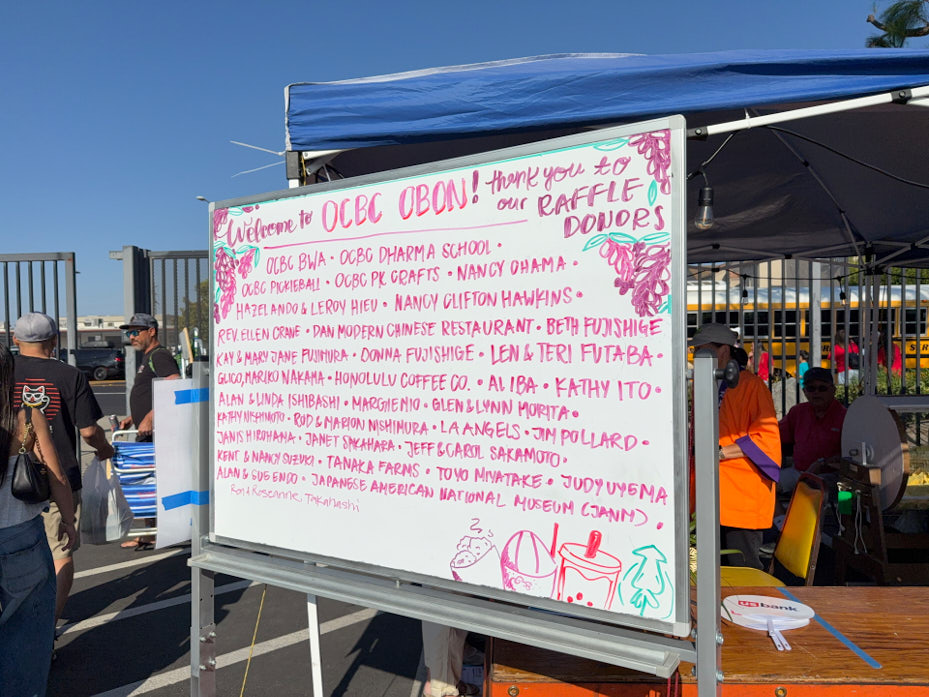 Welcome to OCBC OBON! thank you to our RAFFLE DONORS
OCBC BWA • OCBC DHARMA SCHOOL •
OCBC PICKLEBALL • OCBC PK CRAFTS • NANCY OHAMA •
HAZEL ANDO & LEROY HIEU • NANCY CLIFTON HAWKINS •
REV. ELLEN CRANE • DAN MODERN CHINESE RESTAURANT • BETH FUJISHIGE
KAY & MARY JANE FUJIMURA • DONNA FUJISHIGE • LEN & TERI FUTABA •
GLICO, MARIKO NAKAMA • HONOLULU COFFEE CO. • AL IBA • KATHY ITO •
ALAN & LINDA ISHIBASHI • MARGIE MIO • GLEN & LYNN MORITA •
KATHY NISHIMOTO • ROD & MARION NISHIMURA • LA ANGELS • JIM POLLARD •
JANIS HIROHAMA • JANET SAKAHARA • JEFF & CAROL SAKAMOTO •
KENT & NANCY SUZUKI • TANAKA FARMS • TOYO MIYATAKE • JUDY UYEMA
ALAN & SUE ENDO • JAPANESE AMERICAN NATIONAL MUSEUM (JANM) •
Ron & Roseanne Takahashi
usbank